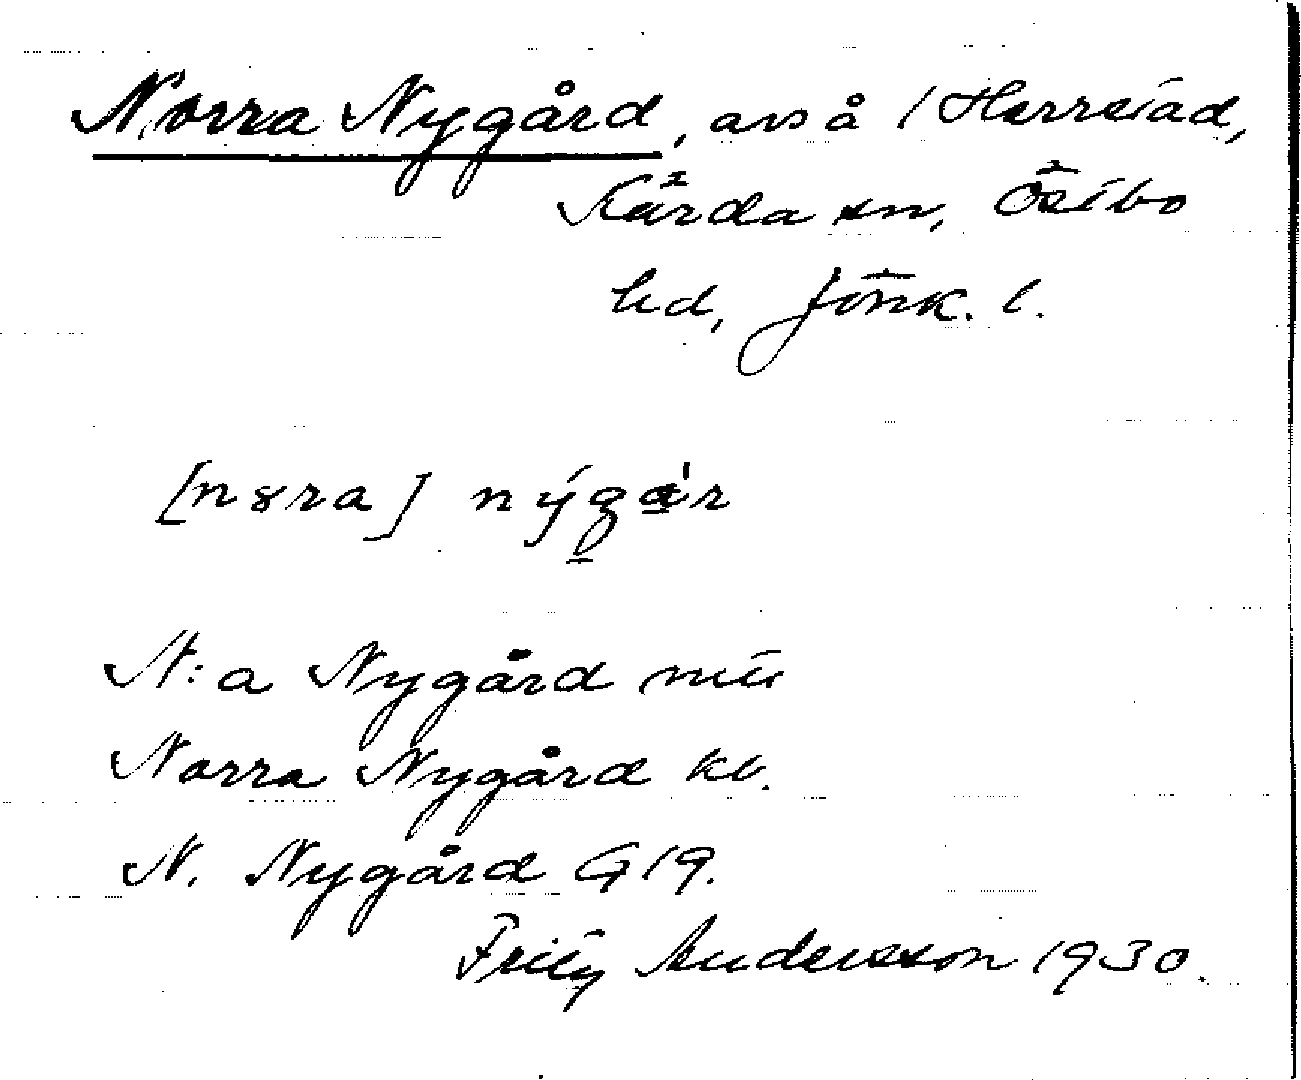 Norra Nygård, avs å / Herrestad,
Kärda sn, Östbo
hd, Jönk. l.
[nɤra] nýgàr
N:a Nygård
Norra Nygård kb.
N. Nygård G19.
Fritz Andersson 1930.